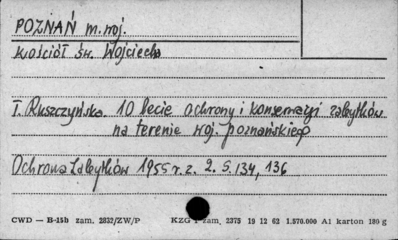 POZNAŃ m. woj.
kościół św. Wojciecha
T. Ruszczyńska. 10 lecie ochrony i konserwacji zabytków
na terenie woj. poznańskiego
Ochrona Zabytków 1955 r. z. 2. s. 134, 136
CWD — B-15b zam. 2832/ZW/P KZG 1 zam. 2375 19 12 62 1.570.000 A1 karton 180 g